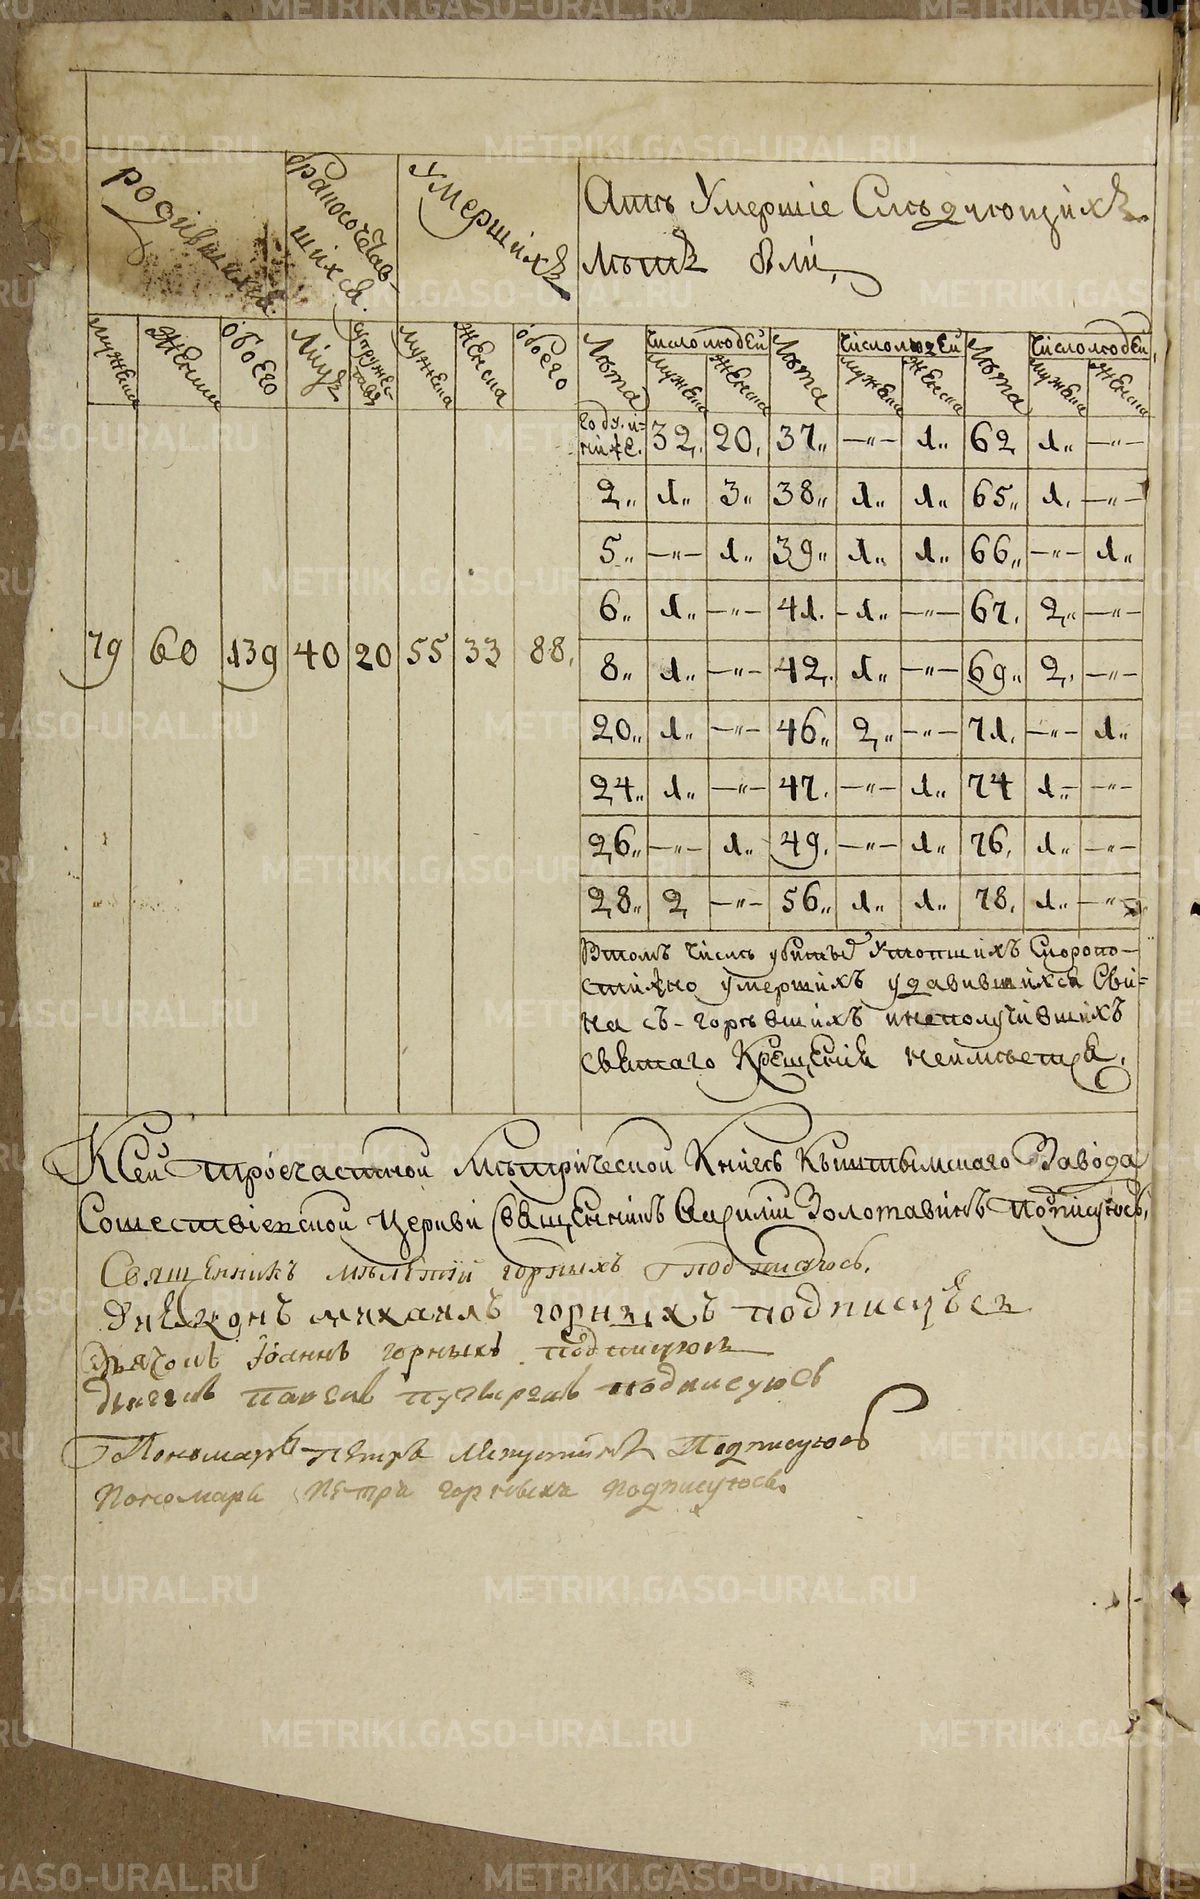 METRIKI.GASO-URAL.RU
родившихся.
бракосочетав-
шихся.
умершихъ
Аткъ Умершіе Слѣдующихъ
лѣтъ были
мужеска
Женска
обоего
Мужъ
мужеска
Женска
обоего
Лѣта
Числолюдей
мужеска
Женска
Лѣта
Числолюдей
мужеска
Женска
Лѣта
Числолюдей
мужеска
Женска
году и-
ниже. 32, 20, 37„ —„— 1„ 62 1„ —„—
2„ 1„ 3„ 38„ 1„ 1„ 65„ 1. —„—
5„ —„— 1„ 39„ 1„ 1„ 66„ —„— 1„
6„ 1„ —„— 41. 1„ —„— 67. 2„ —„—
79 60 139 40 20 55 33 88,
8„ 1„ —„— 42„ 1„ —„— 69„ 2„ —„—
20„ 1„ —„— 46„ 2„ —„— 71. —„— 1„
24„ 1„ —„— 47. —„— 1„ 74 1„ —„—
26„ —„— 1„ 49. —„— 1„ 76, 1„ —„—
28„ 2 —„— 56„ 1„ 1„ 78, 1„ —„—
Втомъ числѣ убитыхъ Утопшихъ Скоропо-
стижно умершихъ удавившихся Сви-
на съ-горѣвшихъ инеполучившихъ
святаго Крещенія неимѣется.
Ксей троечастной Мѣтрической Книгѣ Кыштымскаго Завода
Сошествіевской Церкви Священникъ Василій Золотавинъ подписуюсь,
Священникъ мѣлетій горныхъ подписуюсь.
Диеконъ михаилъ горныхъ подписуюся
Дьячокъ Іоаннъ горныхъ подписуюсь
Дьячекъ павелъ подписуюсь
Пономарь петръ Подписуюсь
Пономарь Петръ горныхъ подписуюсь.